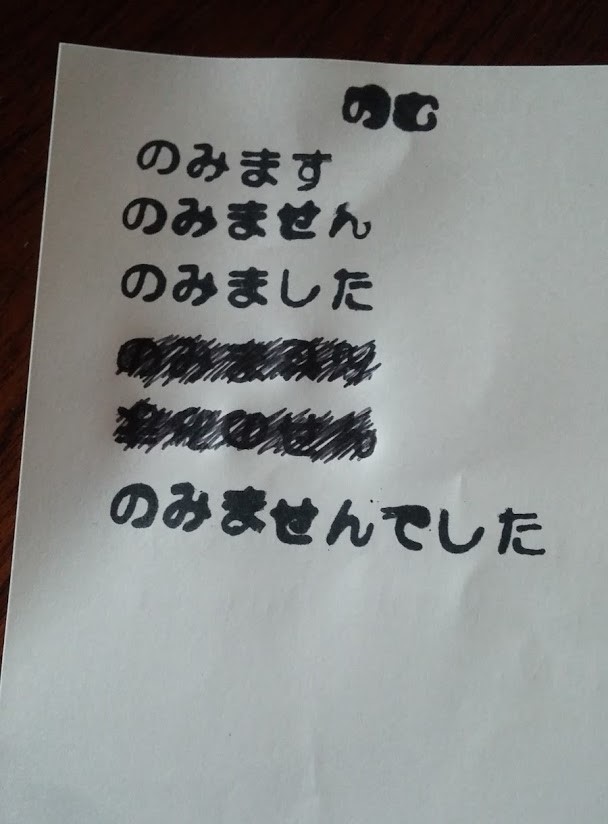 のむ
のみます
のみません
のみました
のみませんでした